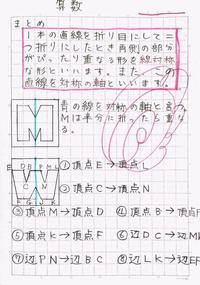 算数
まとめ
1本の直線を折り目にして二
つ折りにしたとき両側の部分
がぴったり重なる形を線対称
な形といいます。また、この
直線を対称の軸といいます。
青の線を対称の軸と言う。
Mは半分に折ったら重な
る。
M
E D B P M L
C N
F G J K
①頂点E→頂点L
②頂点C→頂点N
③頂点M→頂点D ④頂点B→頂点P
⑤頂点K→頂点F ⑥辺DC→辺M
⑦辺PN→辺BC ⑧辺LK→辺EF